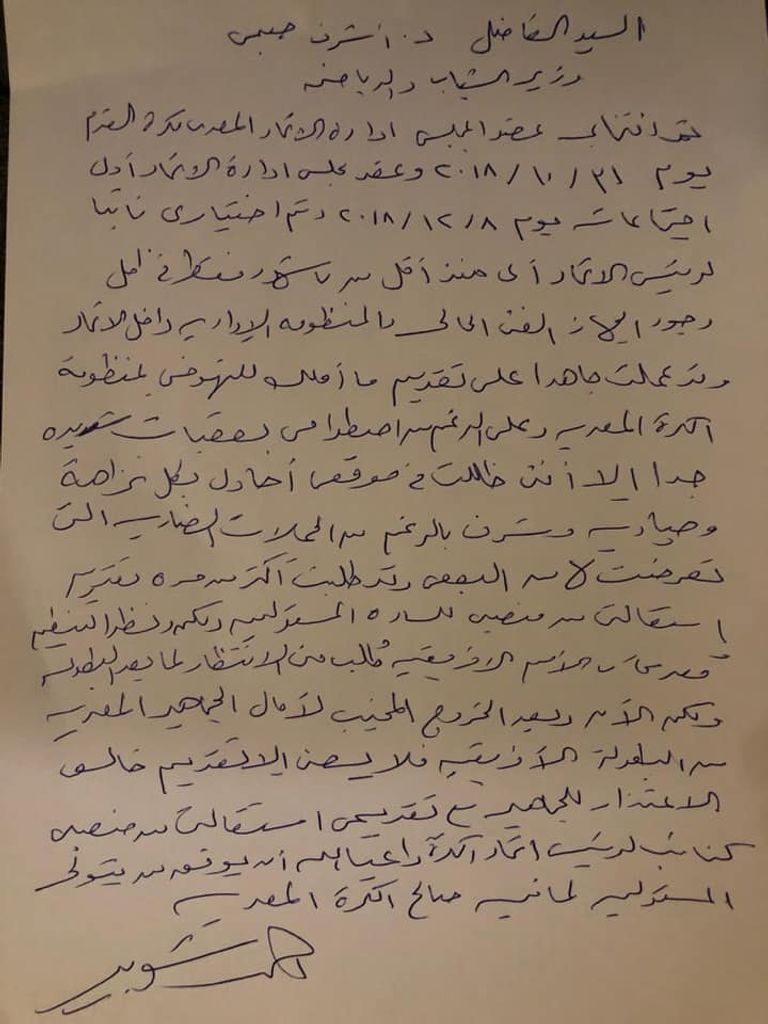 السيد الفاضل د. أشرف صبحى
وزير الشباب والرياضه
تم انتخابى عضو المجلس ادارة الاتحاد المصرى لكرة القدم
يوم ٣١/١٠/٢٠١٨ وعقد مجلس ادارة الاتحاد أول
اجتماعاته يوم ٨/١٢/٢٠١٨ وتم اختيارى نائبا
لرئيس الاتحاد أى منذ أقل من شهور فقط فى ظل
وجود الجهاز الفنى الحالى والمنظومه الإداريه داخل الاتحاد
وقد عملت جاهدا على تقديم ما أملك للنهوض بمنظومة
الكرة المصريه وعلى الرغم من اصطدامى بعقبات شديده
جدا إلا أننى ظللت فى موقعى أحاول بكل نزاهة
وحياديه وشرف بالرغم من الحملات الضاريه التى
تعرضت لها من البعض وقد طلبت أكثر من مره تقديم
إستقالتى من منصبى للساده المسئولين ولكن ونظرا لتنظيم
مصر كأس الأمم الافريقيه طُلب منى الانتظار لما بعد البطوله
ولكن الآن وبعد الخروج المخيب لآمال الجماهير المصريه
من البطولة الأفريقيه فلا يسعنى إلا تقديم خالص
الاعتذار للجماهير مع تقديمى استقالتى من منصبى
كنائب لرئيس اتحاد الكرة داعيا الله أن يوفق من يتولى
المسئوليه لما فيه صالح الكرة المصريه
أحمد شوبير